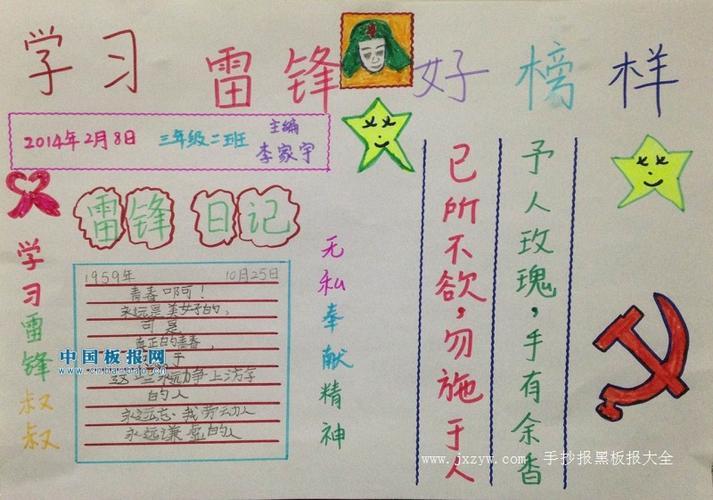 学习雷锋好榜样
2014年2月8日 三年级二班 主编
李家宇
雷锋日记
1959年 10月25日
青春啊！
永远是美好的，
可是
真正的青春，
于
争上游
的人
永远忘 我劳动
永远谦虚的人
学习雷锋叔叔
无私奉献精神
已所不欲，勿施于人
予人玫瑰，手有余香
中国板报网
www.jxzyw.com 手抄报黑板报大全